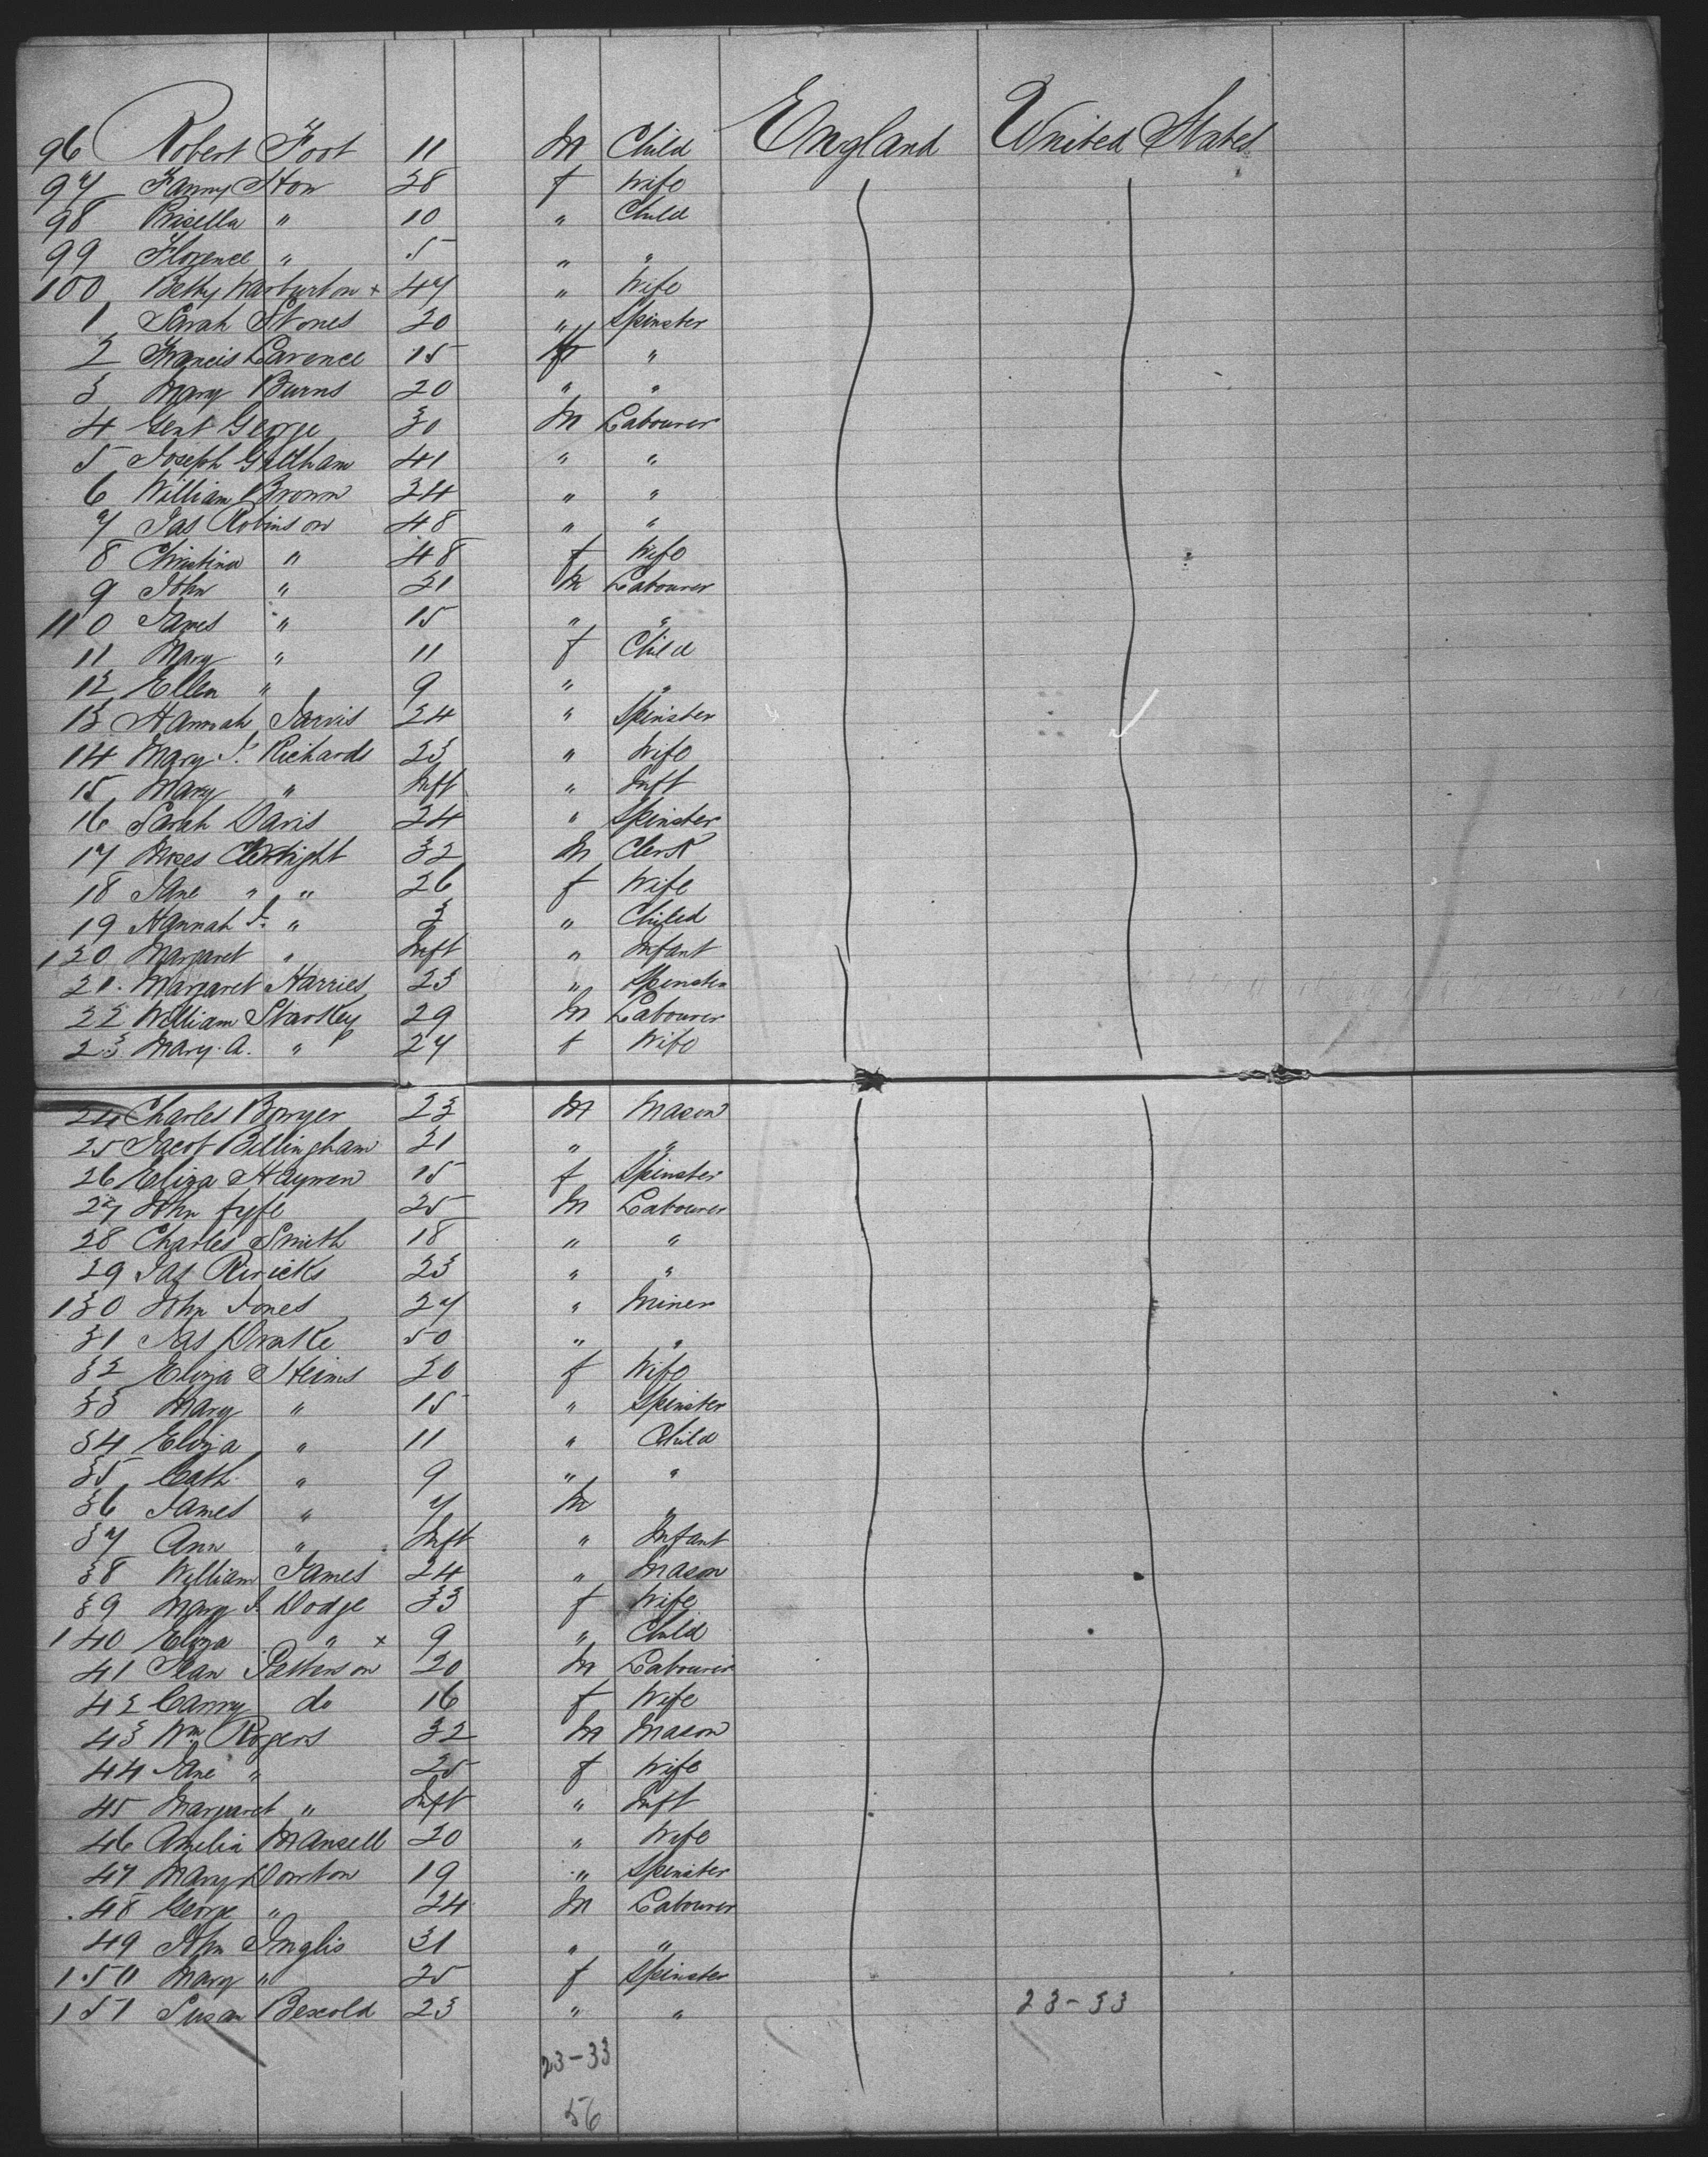 96 Robert Foot 11 M Child England United States
97 Fanny How 38 f Wife
98 " 10 " Child
99 Florence " 5 " "
100 Betty Warburton x 47 " Wife
1 Sarah Stones 20 " Spinster
2 Francis Larence 15 f "
3 Mary Burns 20 " "
4 Gent George 30 M Labourer
5 Joseph 41 " "
6 William Brown 34 " "
7 Jas Robinson 48 " "
8 Christina " 48 f Wife
9 John " 21 M Labourer
110 James " 15 " "
11 Mary " 11 f Child
12 Ellen " 9 " "
13 Hannah Jarvis 24 " Spinster
14 Mary J. Richards 23 " Wife
15 Mary " Inft " Inft
16 Sarah Davis 24 " Spinster
17 Moses 32 M Clerk
18 Jane " " 26 f Wife
19 Hannah J. " 3 " Child
120 Margaret " Inft " Infant
21 Margaret Harries 23 " Spinster
22 William Starkey 29 M Labourer
23 Mary A. " 27 f Wife
24 Charles Bowyer 23 M Mason
25 Jacob Billingham 21 " "
26 Eliza 15 f Spinster
27 John fyfe 25 M Labourer
28 Charles Smith 18 " "
29 Jas 23 " "
130 John Jones 27 " Miner
31 Jas Drake 50 " "
32 Eliza 30 f Wife
33 Mary " 15 " Spinster
34 Eliza " 11 " Child
35 Cath " 9 " "
36 James " 7 M "
37 Ann " Inft " Infant
38 William James 24 " Mason
39 Mary J. Dodge 33 f Wife
140 Eliza " x 9 " Child
41 Jean Patterson 20 M Labourer
42 do 16 f Wife
43 Wm Rogers 32 M Mason
44 Jane " 25 f Wife
45 Margaret " Inft " Inft
46 Amelia Mansell 20 " Wife
47 Mary 19 " Spinster
48 George " 24 M Labourer
49 John Inglis 31 " "
150 Mary " 25 f Spinster
151 Susan Bexold 23 " "
23-33
23-33
56